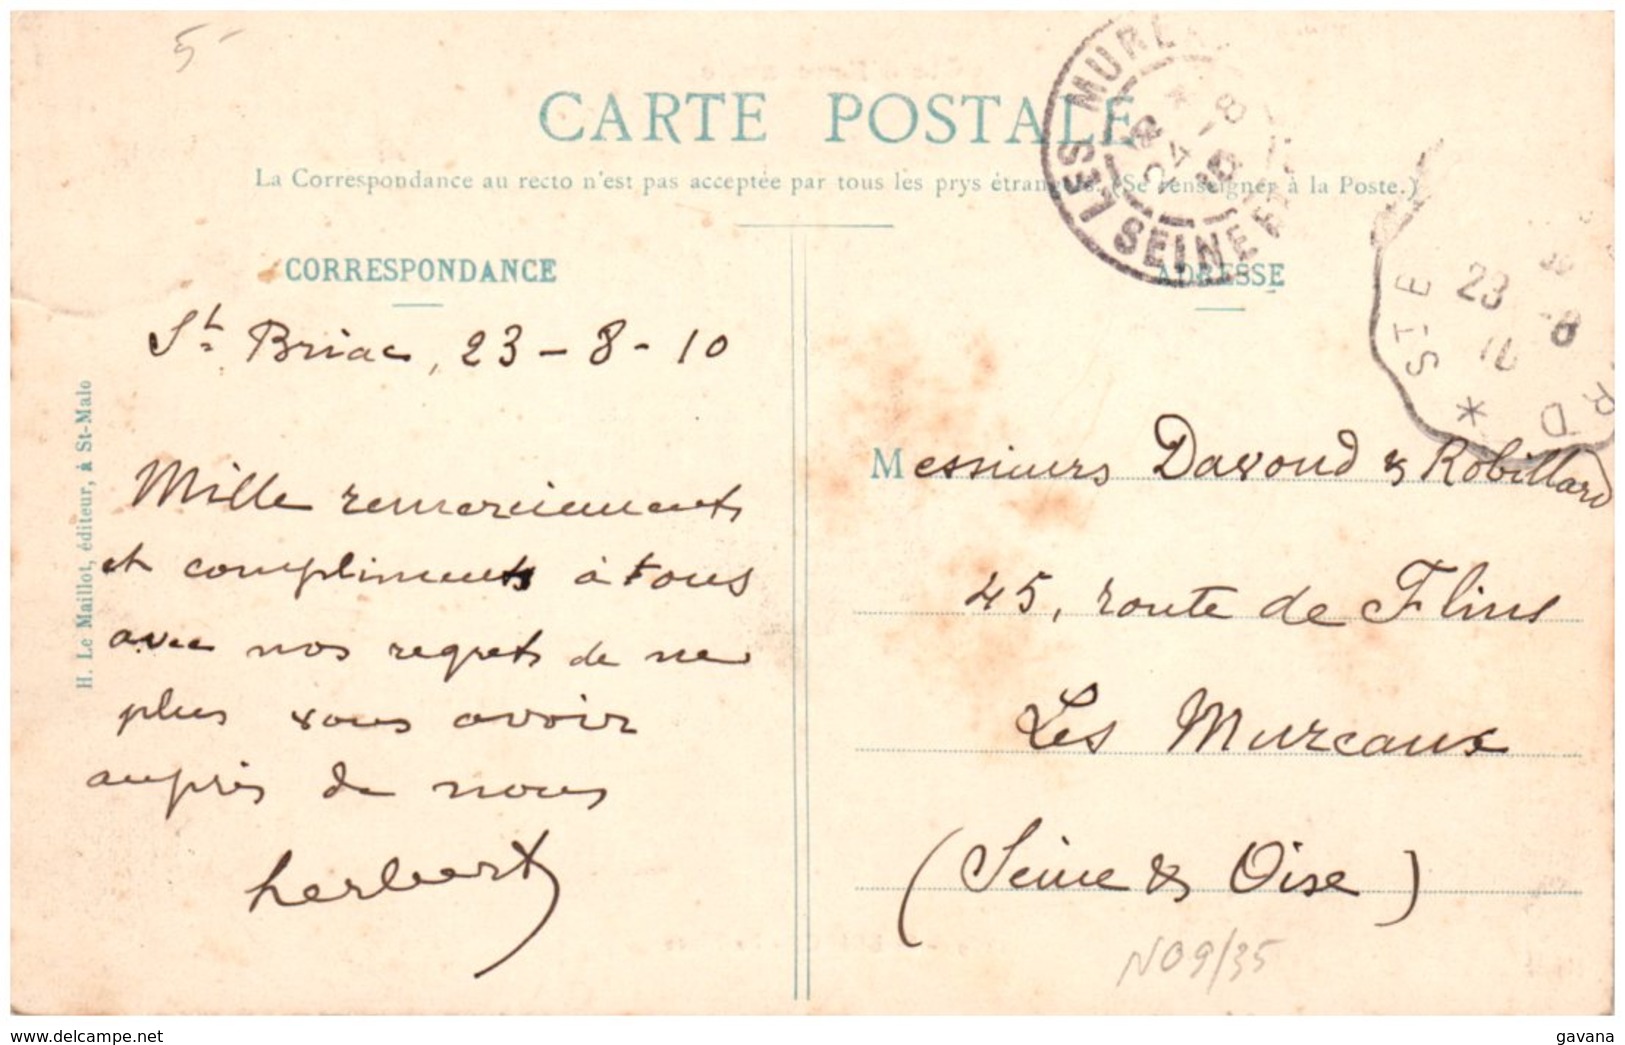 5-
CARTE POSTALE
La Correspondance au recto n'est pas acceptée par tous les pays étrangers. (Se renseigner à la Poste.)
LES MUREAUX
* 8
24 - 8
10
SEINE ET
STE
23 - 8
10
*
RD
CORRESPONDANCE
ADRESSE
St Briac, 23-8-10
Mille remerciements
et compliments à tous
avec nos regrets de ne
plus vous avoir
auprès de nous
herbert
H. Le Maillot, éditeur, à St-Malo
Messieurs Davoud & Robillard
45, route de Flins
Les Mureaux
(Seine & Oise)
N09/35
www.delcampe.net
gavana